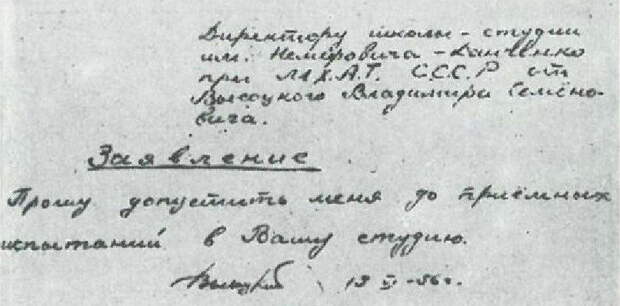 Директору школы-студии
им. Немировича-Данченко
при М.Х.А.Т. С.С.С.Р от
Высоцкого Владимира Семёно-
вича.
Заявление
Прошу допустить меня до приёмных
испытаний в Вашу студию.
13 VI-56 г.